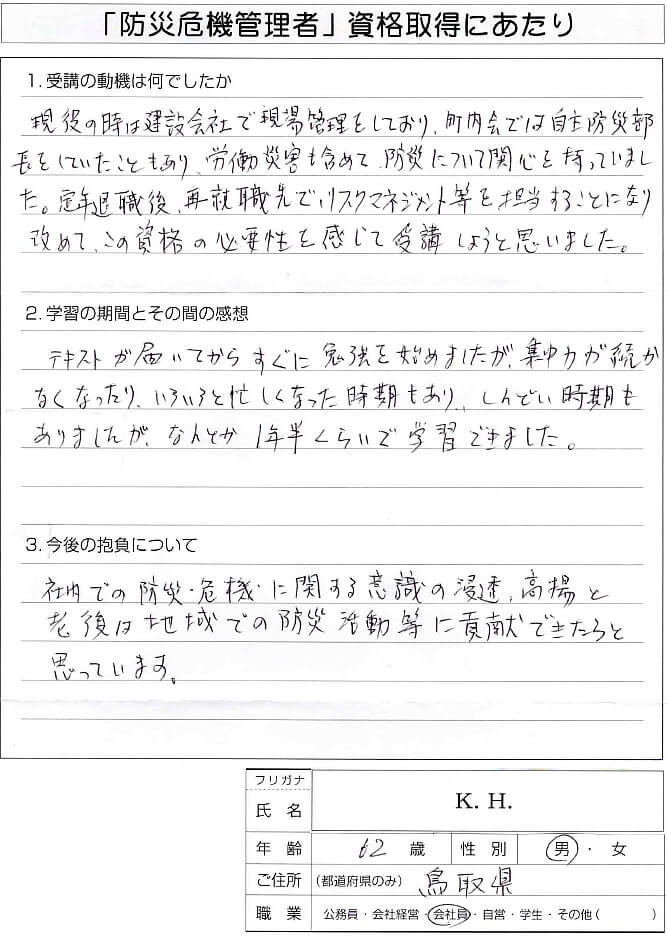 「防災危機管理者」資格取得にあたり
1. 受講の動機は何でしたか
現役の時は建設会社で現場管理をしており、町内会では自主防災部
長をしていたこともあり、労働災害も含めて、防災について関心を持っていまし
た。定年退職後、再就職先でリスクマネジメント等を担当することになり
改めて、この資格の必要性を感じて受講しようと思いました。
2. 学習の期間とその間の感想
テキストが届いてからすぐに勉強を始めましたが、集中力が続か
なくなったり、いろいろと忙しくなった時期もあり、しんどい時期も
ありましたが、なんとか1年半くらいで学習できました。
3. 今後の抱負について
社内での防災・危機に関する意識の浸透、高揚と
老後は地域での防災活動等に貢献できたらと
思っています。
フリガナ
氏名 K. H.
年齢 62 歳 性別 男・女
ご住所 (都道府県のみ) 鳥取県
職業 公務員・会社経営・会社員・自営・学生・その他( )